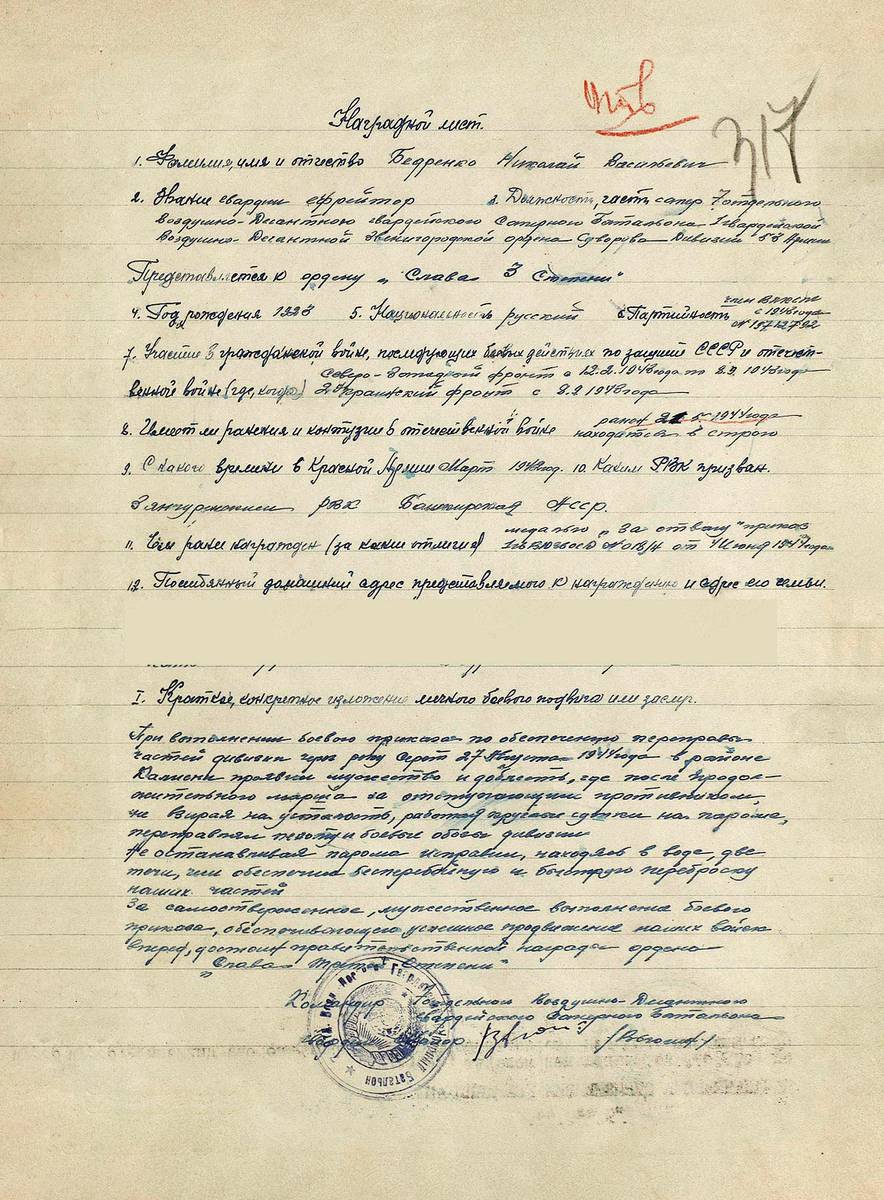 317
Наградной лист.
1. Фамилия, имя и отчество Бедренко Николай Васильевич
2. Звание гвардии ефрейтор 3. Должность, часть сапер 7 отдельного
Воздушно-Десантного гвардейского Саперного Батальона 1 гвардейской
Воздушно-Десантной Звенигородской ордена Суворова Дивизии 53 Армии
Представляется к ордену „Слава 3 Степени"
4. Год рождения 1923 5. Национальность русский 6. Партийность член ВКП(б)
с 1943 года
№
7. Участие в гражданской войне, последующих боевых действиях по защите СССР и отечест-
Северо-Западный фронт с 12.2.1943 года по 8.9.1943 года
венной войне (где, когда) 2 Украинский фронт с 8.9.1943 года
8. Имеет ли ранения и контузии в отечественной войне ранен 1944 года
находится в строю
9. С какого времени в Красной Армии Март 10. Каким РВК призван.
РВК Башкирская АССР.
11. Чем ранее награжден (за какие отличия) медалью „За отвагу" приказ
№ 018/4 от 4 Июня 1944 года
12. Постоянный домашний адрес представляемого к награждению и адрес его семьи.
I. Краткое, конкретное изложение личного боевого подвига или заслуг.
При выполнении боевого приказа по обеспечению переправы
частей дивизии через реку Серет 27 Августа 1944 года в районе
проявил мужество и доблесть, где после продол-
жительного марша за отступающим противником,
не взирая на усталость, работая круглые сутки на пароме,
переправлял пехоту и боевые обозы дивизии
Не останавливая парома исправил, находясь в воде, две
течи, чем обеспечил бесперебойную и быструю переброску
наших частей
За самоотверженное, мужественное выполнение боевого
приказа, обеспечивающего успешное продвижение наших войск
вперед, достоин правительственной награды ордена
„Слава Третьей Степени"
Командир 7 отдельного Воздушно-Десантного
гвардейского Саперного Батальона
Гвардии Майор
Батальон